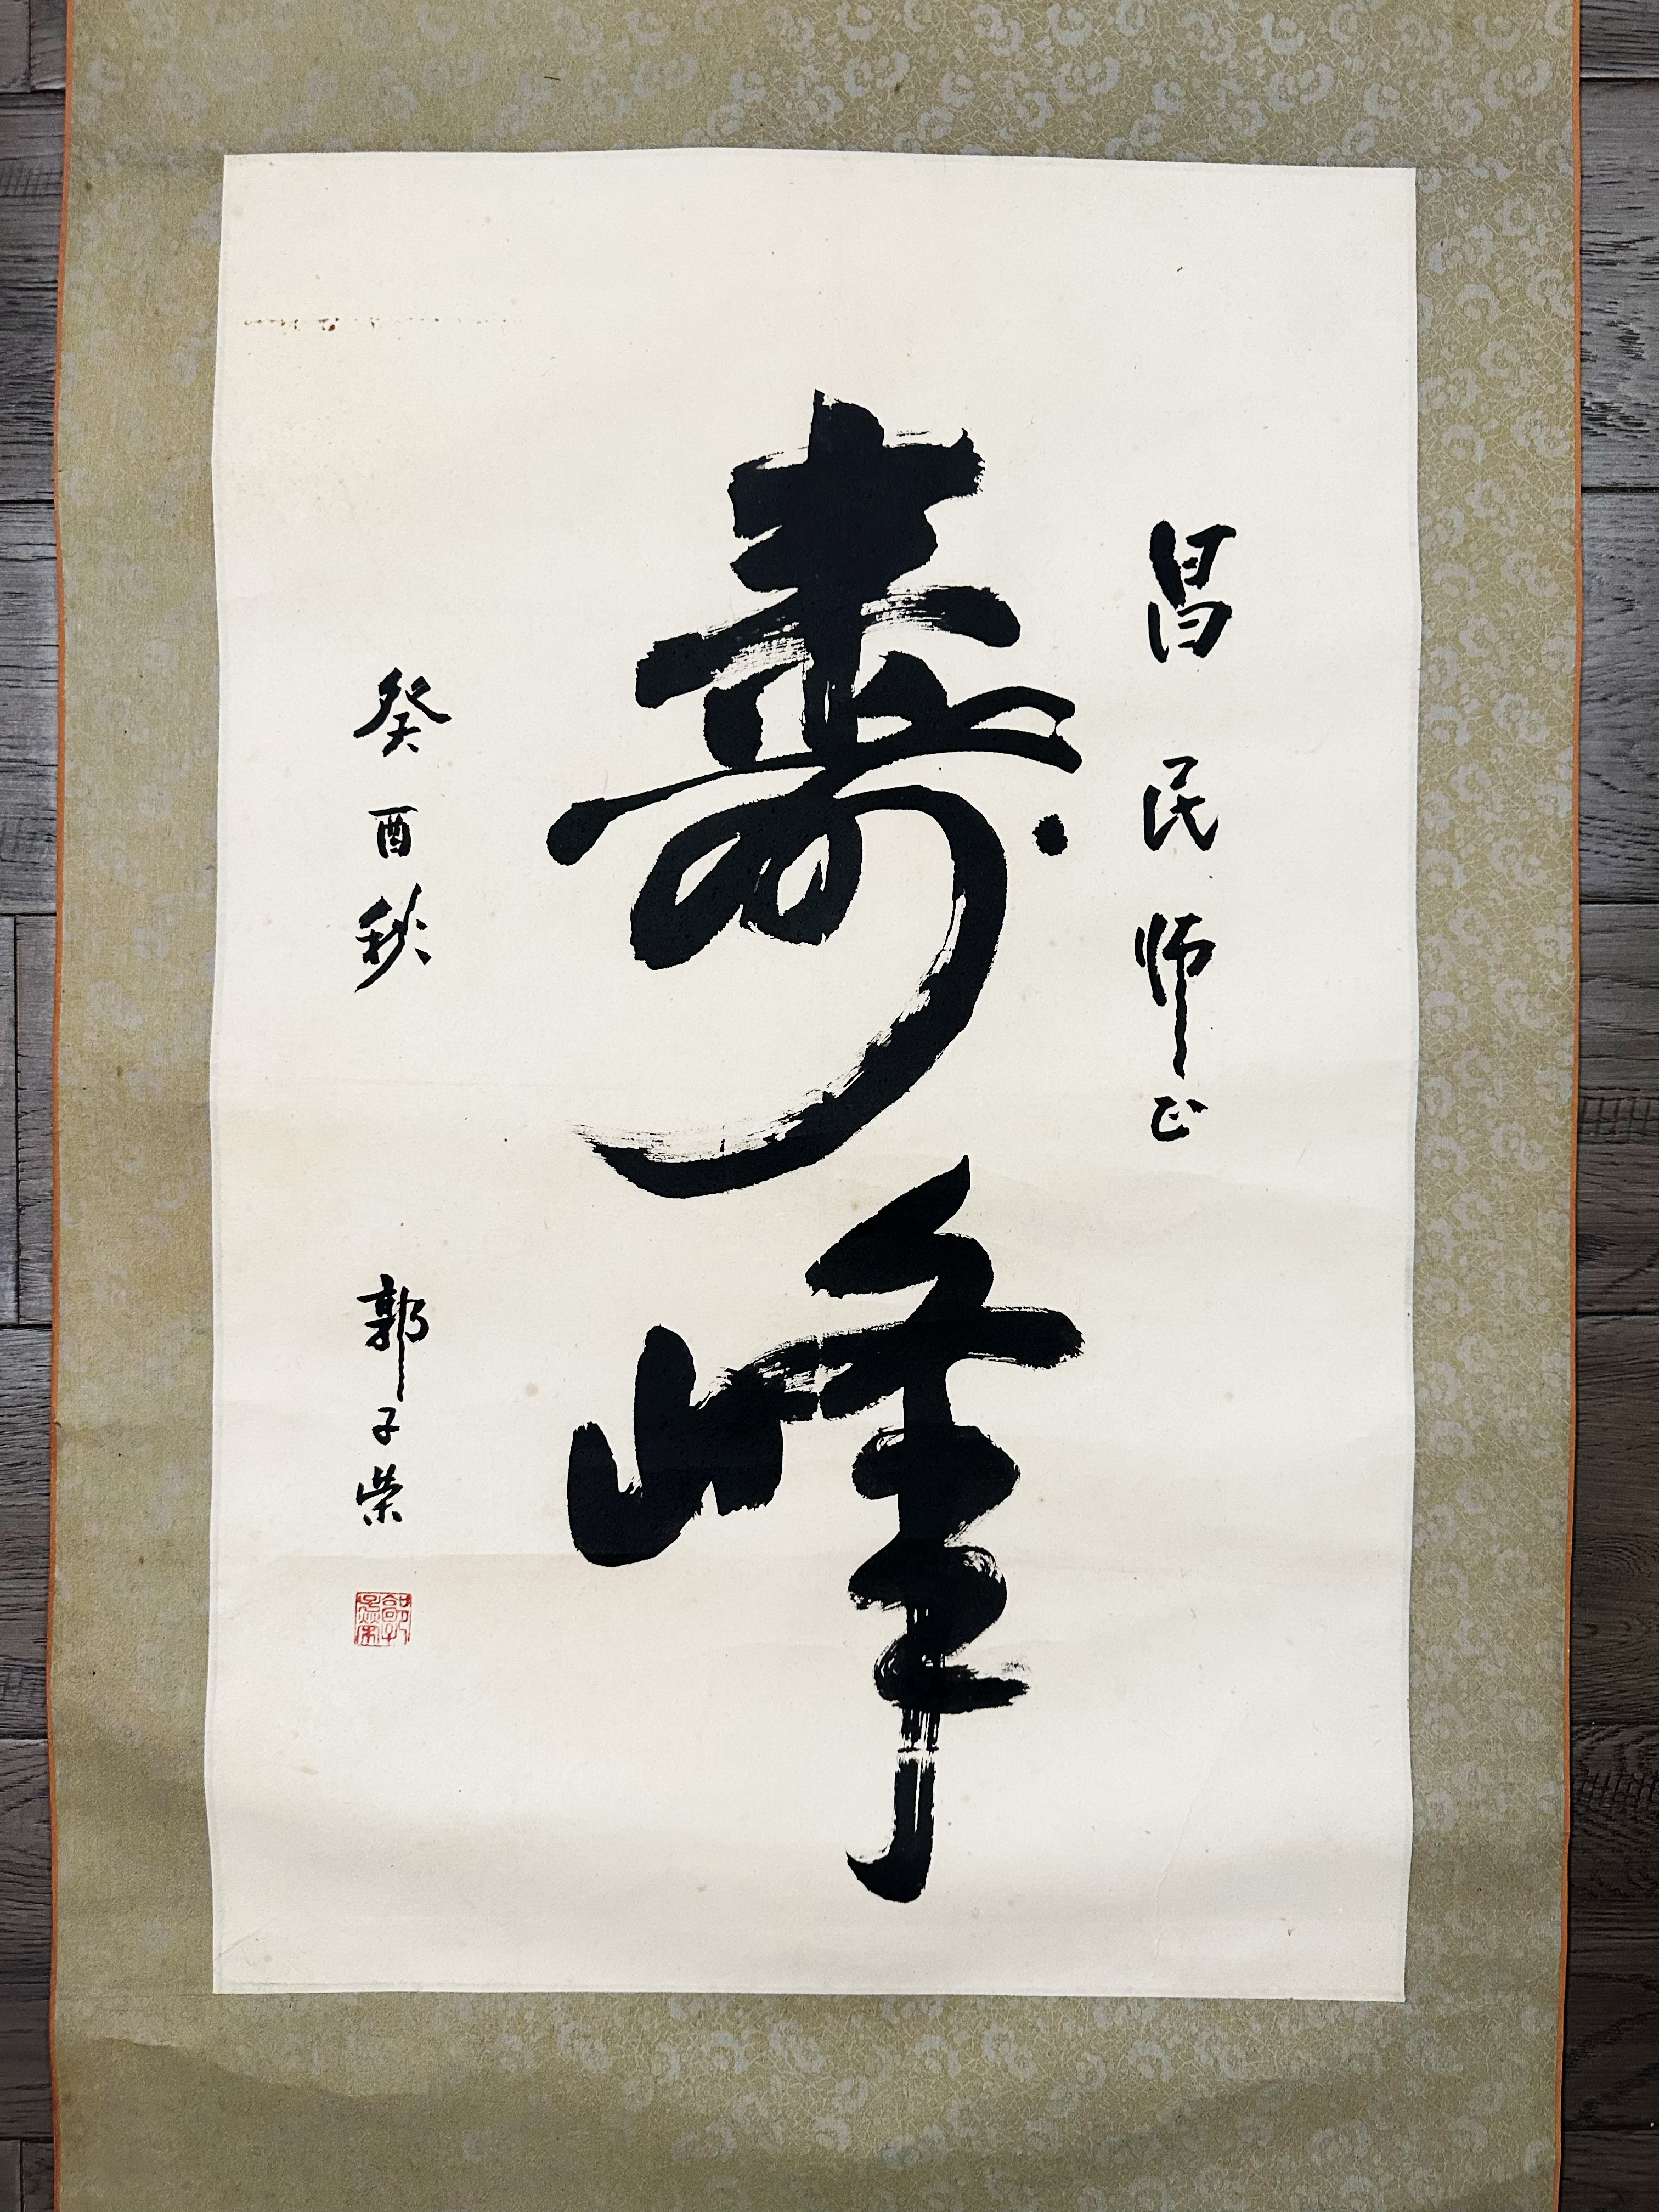 昌民师正
寿峰
癸酉秋 郭子荣